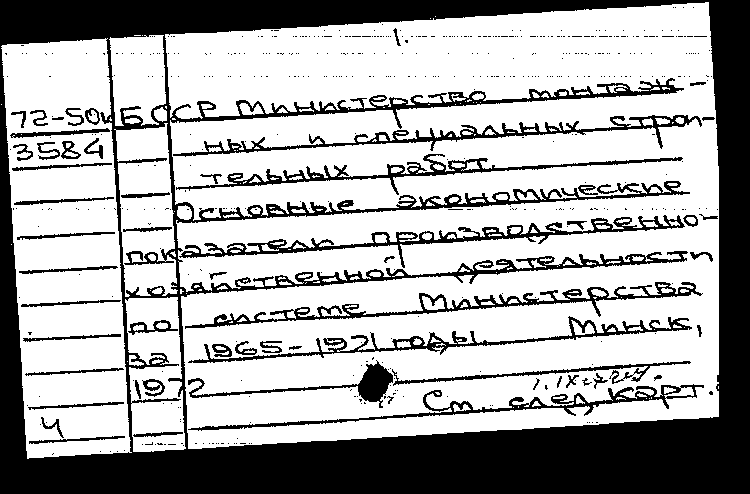 1.
72-50и БССР Министерство монтаж-
3584 ных и специальных строи-
тельных работ.
Основные экономические
показатели производственно-
хозяйственной деятельности
по системе Министерства
за 1965-1971 годы. Минск,
1972
См. след. карт.
ч